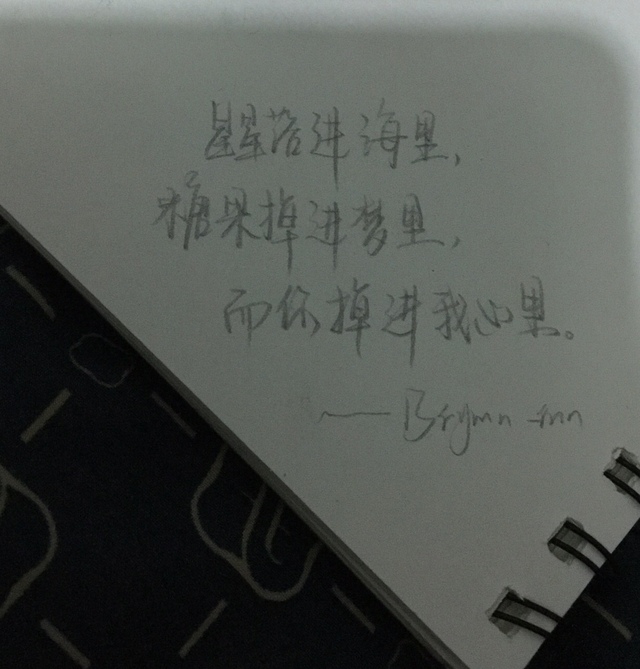 星星落进海里，
糖果掉进梦里，
而你掉进我心里。